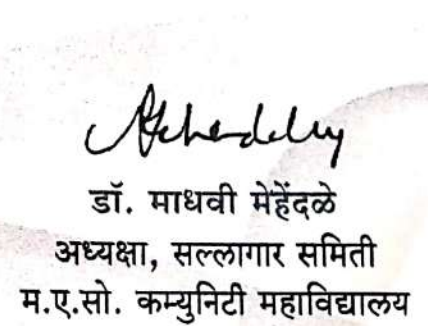 डॉ. माधवी मेहेंदळे
अध्यक्षा, सल्लागार समिती
म.ए.सो. कम्युनिटी महाविद्यालय